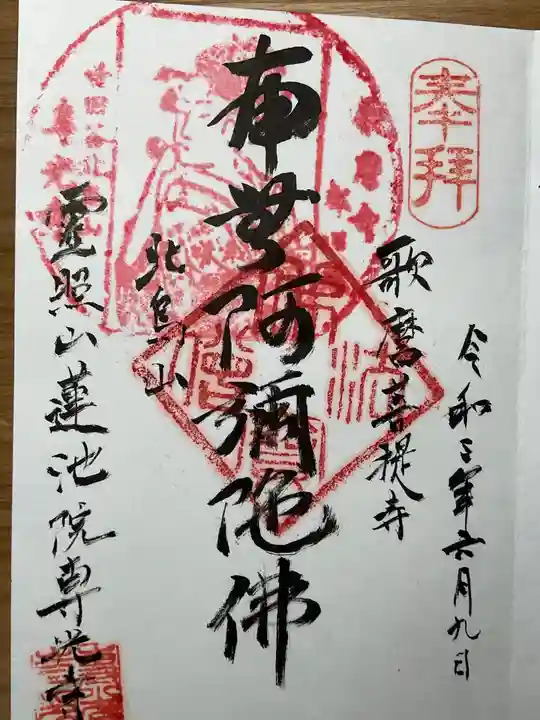 奉拝
令和三年六月九日
歌麿菩提寺
南無阿彌陀佛
北烏山
霊照山蓮池院専光寺